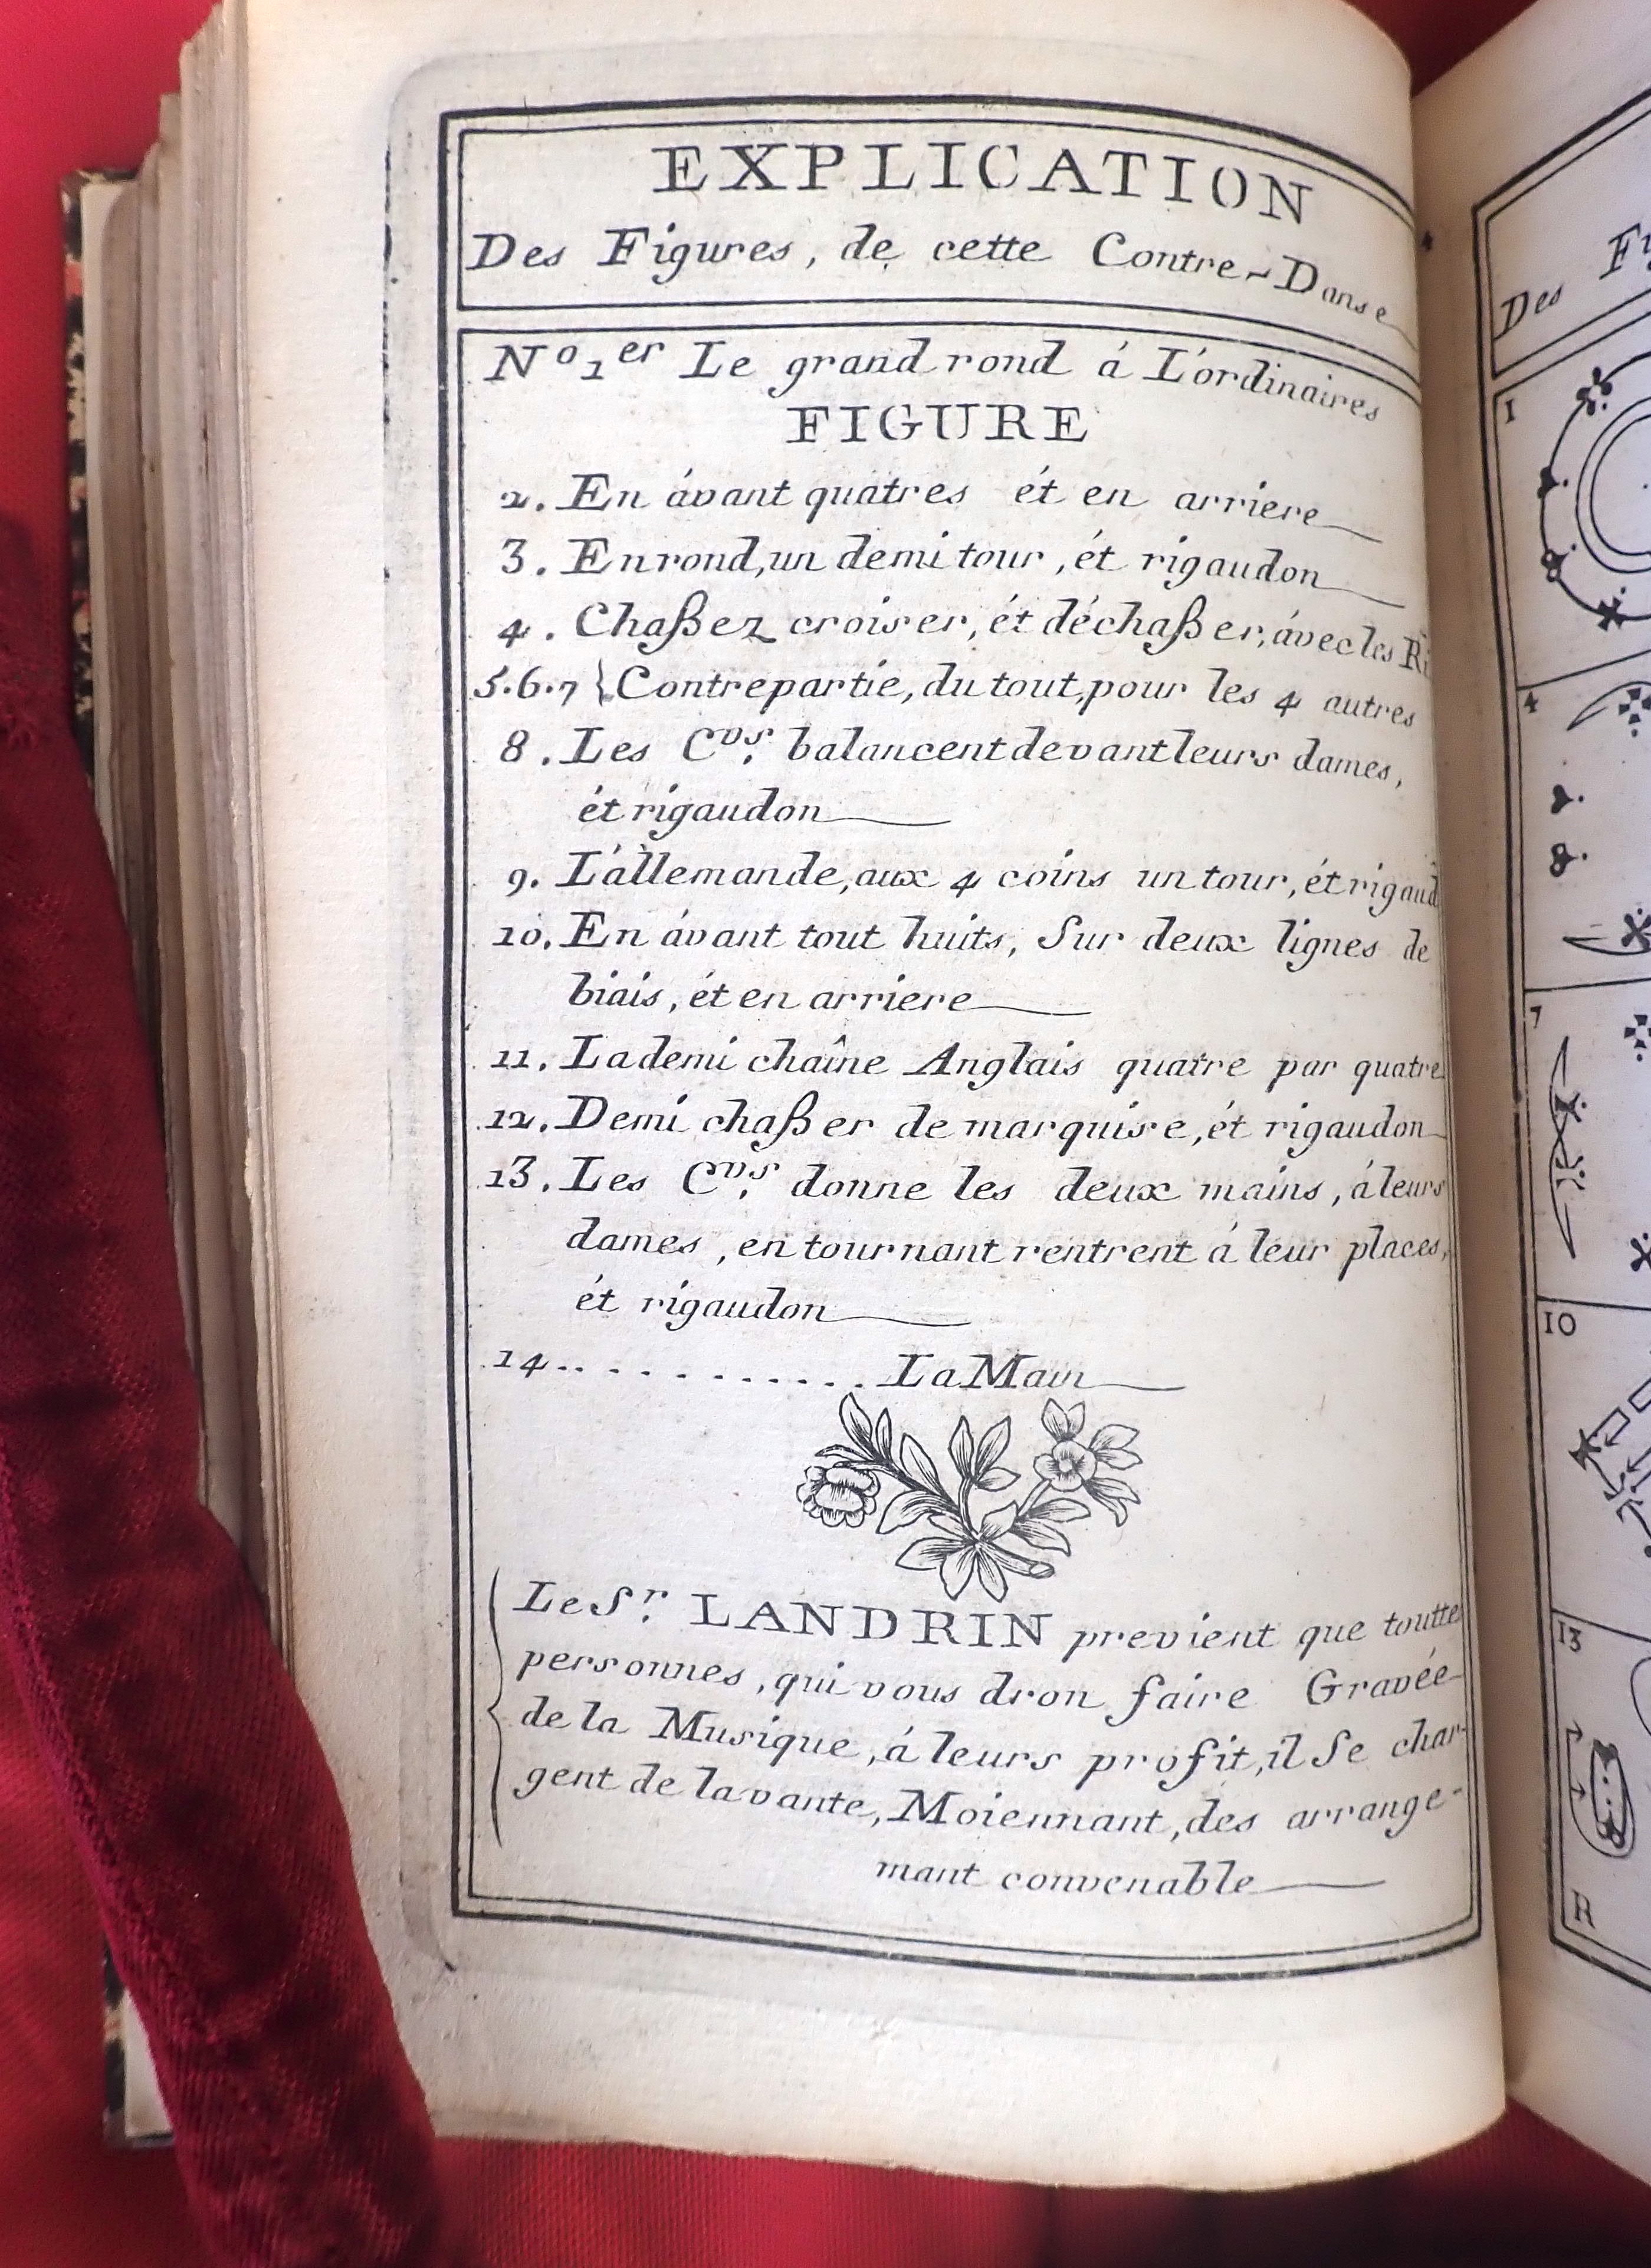 EXPLICATION
Des Figures, de cette Contre-Danse
N° 1er Le grand rond á L'ordinaires
FIGURE
2. En ávant quatres ét en arriere
3. En rond, un demi tour, ét rigaudon
4. Chaßez croiser, ét déchaßer, ávec les Ri
5.6.7 } Contrepartie, du tout, pour les 4 autres
8. Les Cvs. balancent devant leurs dames,
ét rigaudon
9. L'állemande, aux 4 coins un tour, ét rigaud
10. En ávant tout huits, Sur deux lignes de
biais, ét en arriere
11. La demi chaîne Anglais quatre par quatre
12. Demi chaßer de marquise, ét rigaudon
13. Les Cvs. donne les deux mains, á leurs
dames, en tournant rentrent á leur places,
ét rigaudon
14. . . . . . . . . . . . La Main
Le Sr. LANDRIN previent que toutte
personnes, qui vous dron faire Gravée
de la Musique, á leurs profit, il Se char-
gent de la vante, Moiennant, des arrange-
mant convenable
Des
1
4
7
10
13
R